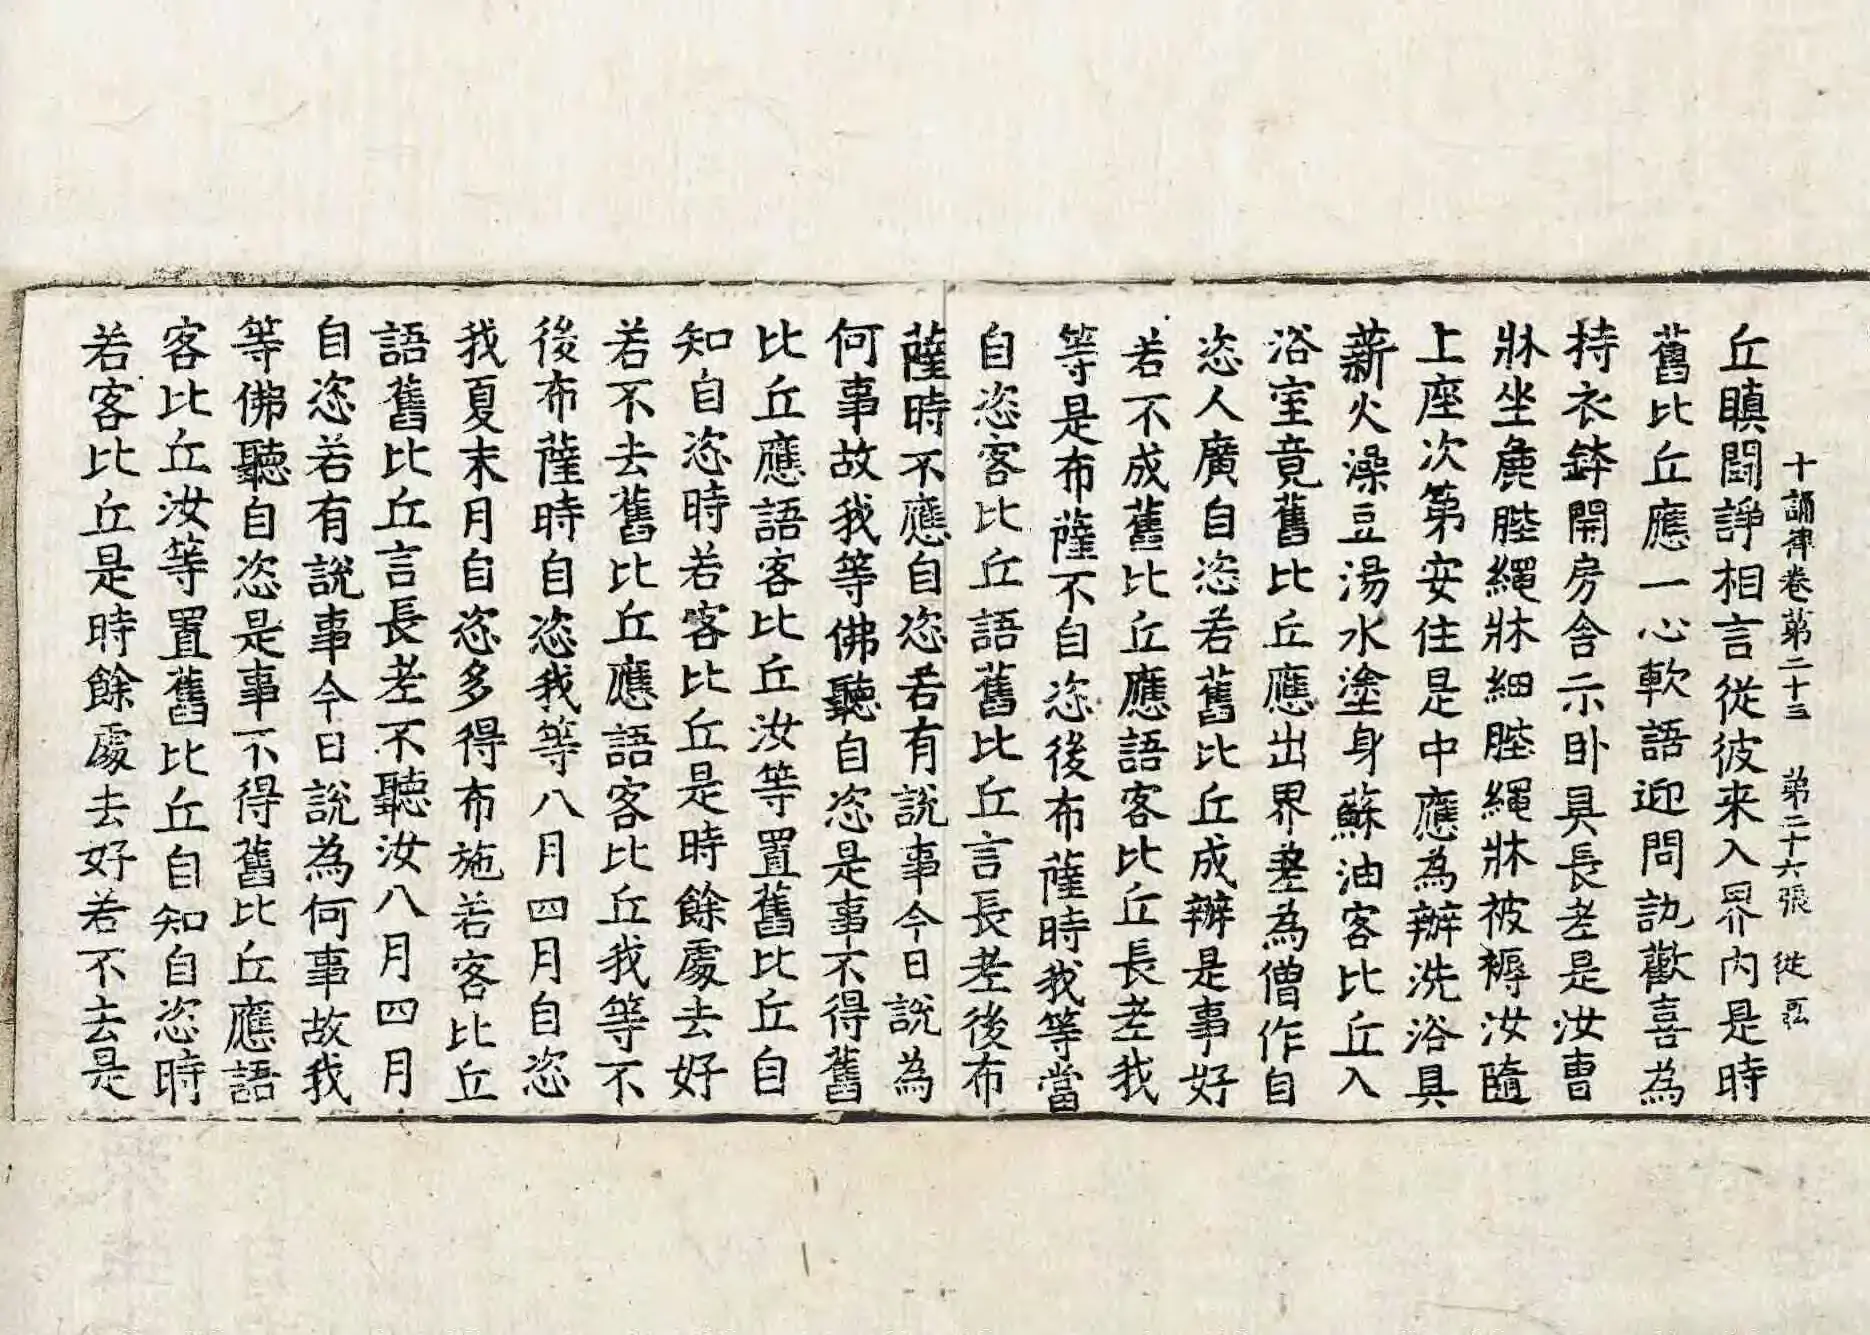 十誦律卷第二十三 第二十六張 從
丘瞋鬪諍相言從彼来入界内是時
舊比丘應一心軟語迎問訊歡喜為
持衣鉢開房舍示卧具長老是汝曹
牀坐麁陛繩牀細陛繩牀被褥汝隨
上座次第安住是中應為辦洗浴具
薪火澡豆湯水塗身蘇油客比丘入
浴室竟舊比丘應出界差為僧作自
恣人廣自恣若舊比丘成辦是事好
若不成舊比丘應語客比丘長老我
等是布薩不自恣後布薩時我等當
自恣客比丘語舊比丘言長老後布
薩時不應自恣若有說事今日說為
何事故我等佛聽自恣是事不得舊
比丘應語客比丘汝等置舊比丘自
知自恣時若客比丘是時餘處去好
若不去舊比丘應語客比丘我等不
後布薩時自恣我等八月四月自恣
我夏末月自恣多得布施若客比丘
語舊比丘言長老不聽汝八月四月
自恣若有說事今日說為何事故我
等佛聽自恣是事不得舊比丘應語
客比丘汝等置舊比丘自知自恣時
若客比丘是時餘處去好若不去是